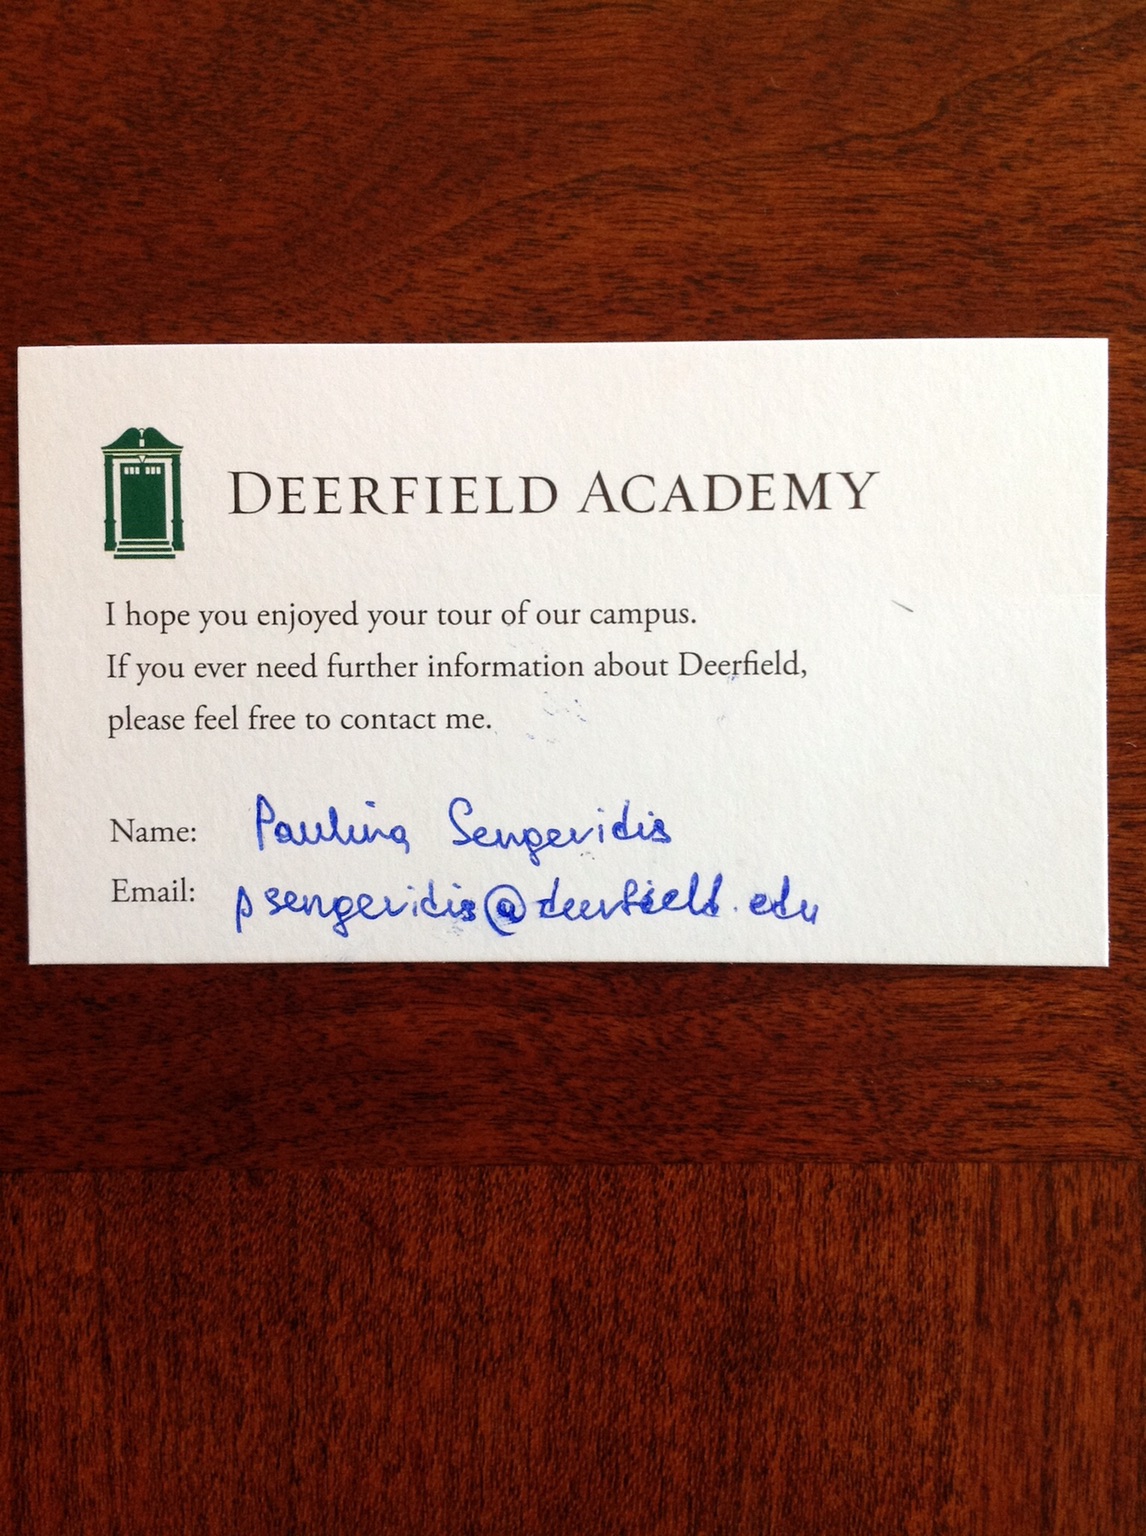 DEERFIELD ACADEMY
I hope you enjoyed your tour of our campus.
If you ever need further information about Deerfield,
please feel free to contact me.
Name: Paulina Sengeridis
Email: psengeridis@deerfield.edu